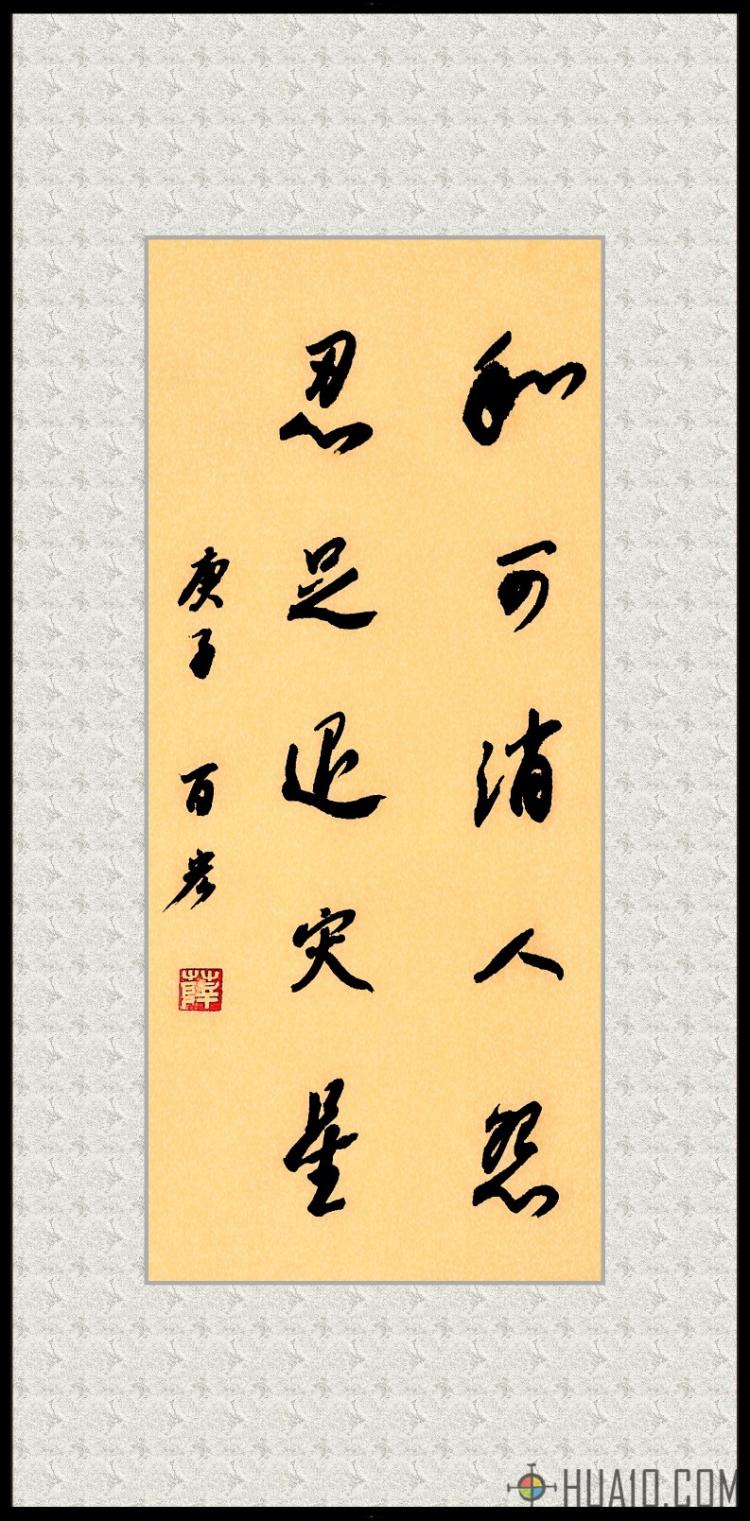 和可消人怨
忍足退灾星
庚子 百岩
薛
HUA10.COM